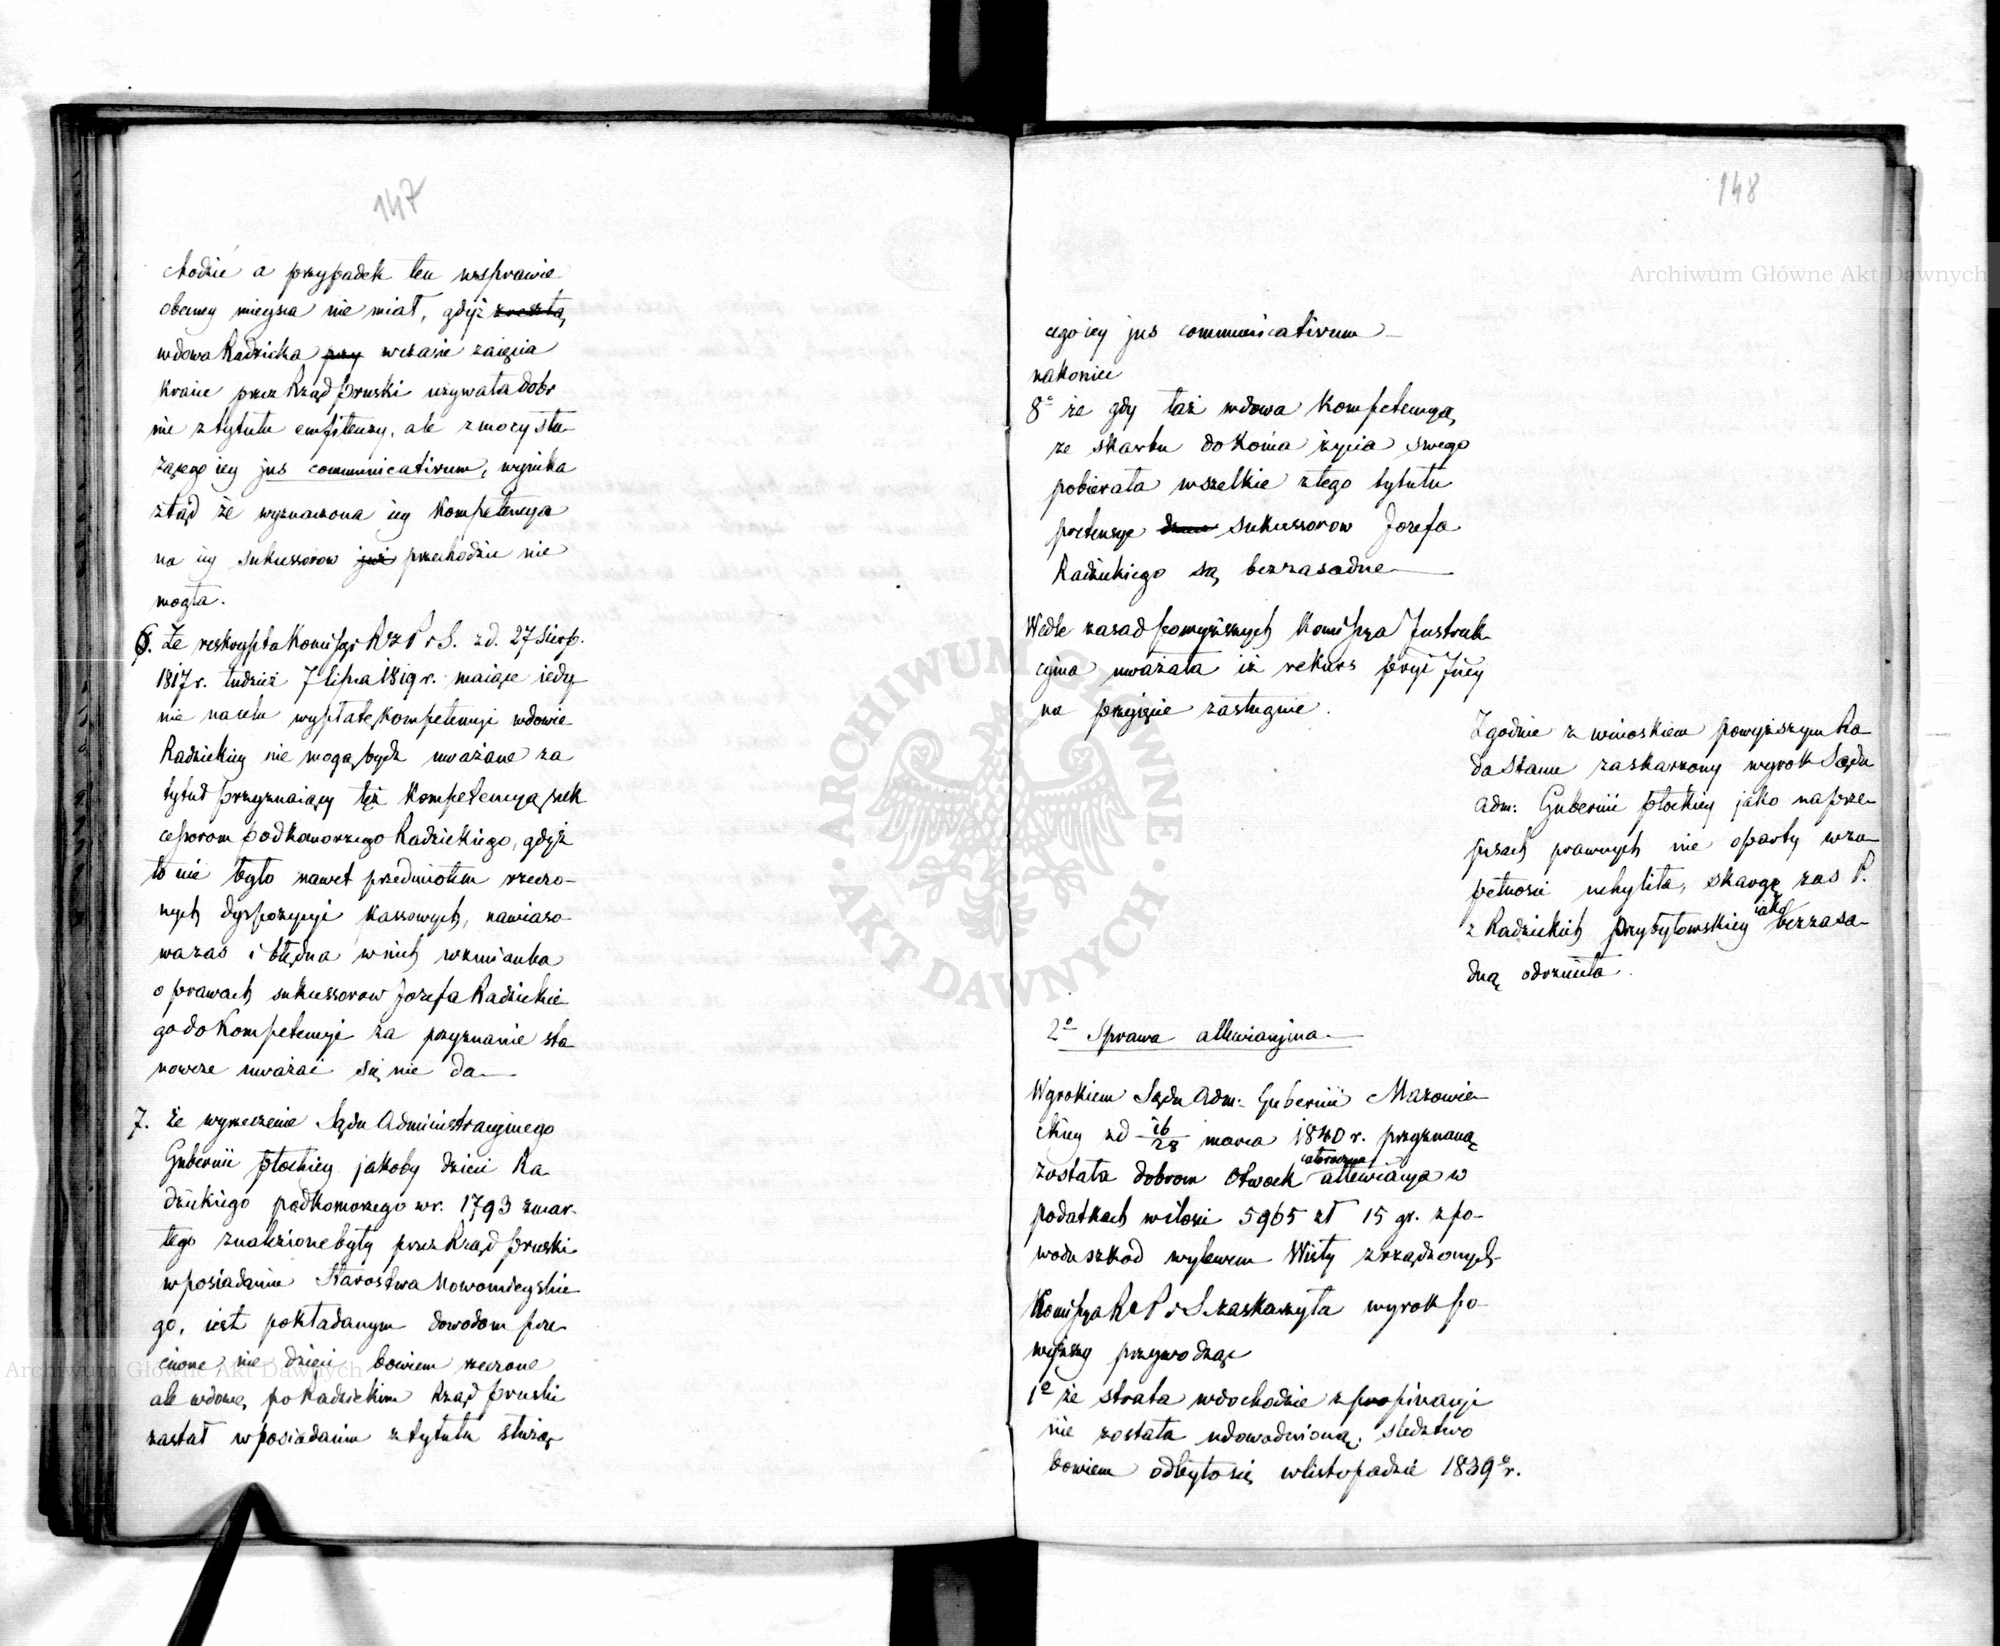 147
chodzie a przypadek ten wsprawie
obecney mieysca nie miał, gdyż zresztą
wdowa Radzicka przy wczasie zaięcia
kraiu przez Rząd pruski używała dobr
nie ztytułu emfiteuzy, ale zmocy słu-
żącego iey jus communicativum, wynika
ztąd że wyznaczona iey kompetencya
na iey sukcessorow już przechodzić nie
mogła.
6. Że reskrypta Kommissyi R P i S. z d. 27 Sierp.
1817 r. tudzież 7 lipca 1819 r. maiące iedy-
nie nacelu wypłatę kompetencyi wdowie
Radzickiey nie mogą bydź uważane za
tytuł przyznaiący też kompetencyą suk
cessorom podkomorzego Radzickiego, gdyż
to nie było nawet przedmiotem rzeczo-
nych dyspozycyi kassowych, nawiaso-
wa zas i błędna wnich wzmianka
o prawach sukcessorow Jozefa Radzickie-
go do Kompetencyi za przyznanie sta
nowcze uważać się nie da
7. że wyrzeczenie Sądu Administracyinego
Gubernii płockiey jakoby dzieci Ra-
dzickiego podkomorzego wr. 1793 zmar-
łego znalezione były przez Rząd pruski
wposiadaniu Starostwa Nowomieyskie
go, iest pokładanym dowodom prze
ciwne, nie dzieci bowiem rzeczone
ale wdowę po Radzickim Rząd pruski
zastał wposiadaniu ztytułu służą-
148
cego iey jus communicativum
nakoniec
8o że gdy taż wdowa kompetencyą
ze skarbu do końca życia swego
pobierała wszelkie ztego tytułu
pretensye sukcessorow Jozefa
Radzickiego są bezzasadne
Wedle zasad powyższych Kommissya Instruk-
cyina uważała iż rekurs
na przyięcie zasługuie.
Zgodnie z wnioskiem powyższym Ra
da Stanu zaskarżony wyrok Sądu
Adm: Gubernii płockiey jako na prze-
pisach prawnych nie oparty wzu-
pełnosci uchyliła, skargę zas P.
z Radzickich Przyłytowskiey iako bezzasa-
dną odrzuciła.
2o Sprawa allewiacyina
Wyrokiem Sądu Adm: Gubernii Mazowie-
ckiey zd 16/28 marca 1840 r. przyznaną
została dobrom Otwock czteroletnia allewiacya w
podatkach wilosci 5965 zł 15 gr. zpo-
wodu szkod wylewem Wisły zrządzonych
Kommissya R P i S. zaskarżyła wyrok po
wyższy przywodząc
1o że strata wdochodzie z propinacyi
nie została udowodnioną, sledztwo
bowiem odbyło się wlistopadzie 1839o r.
Archiwum Główne Akt Dawnych
Archiwum Główne Akt Dawnych
ARCHIWUM GŁÓWNE AKT DAWNYCH